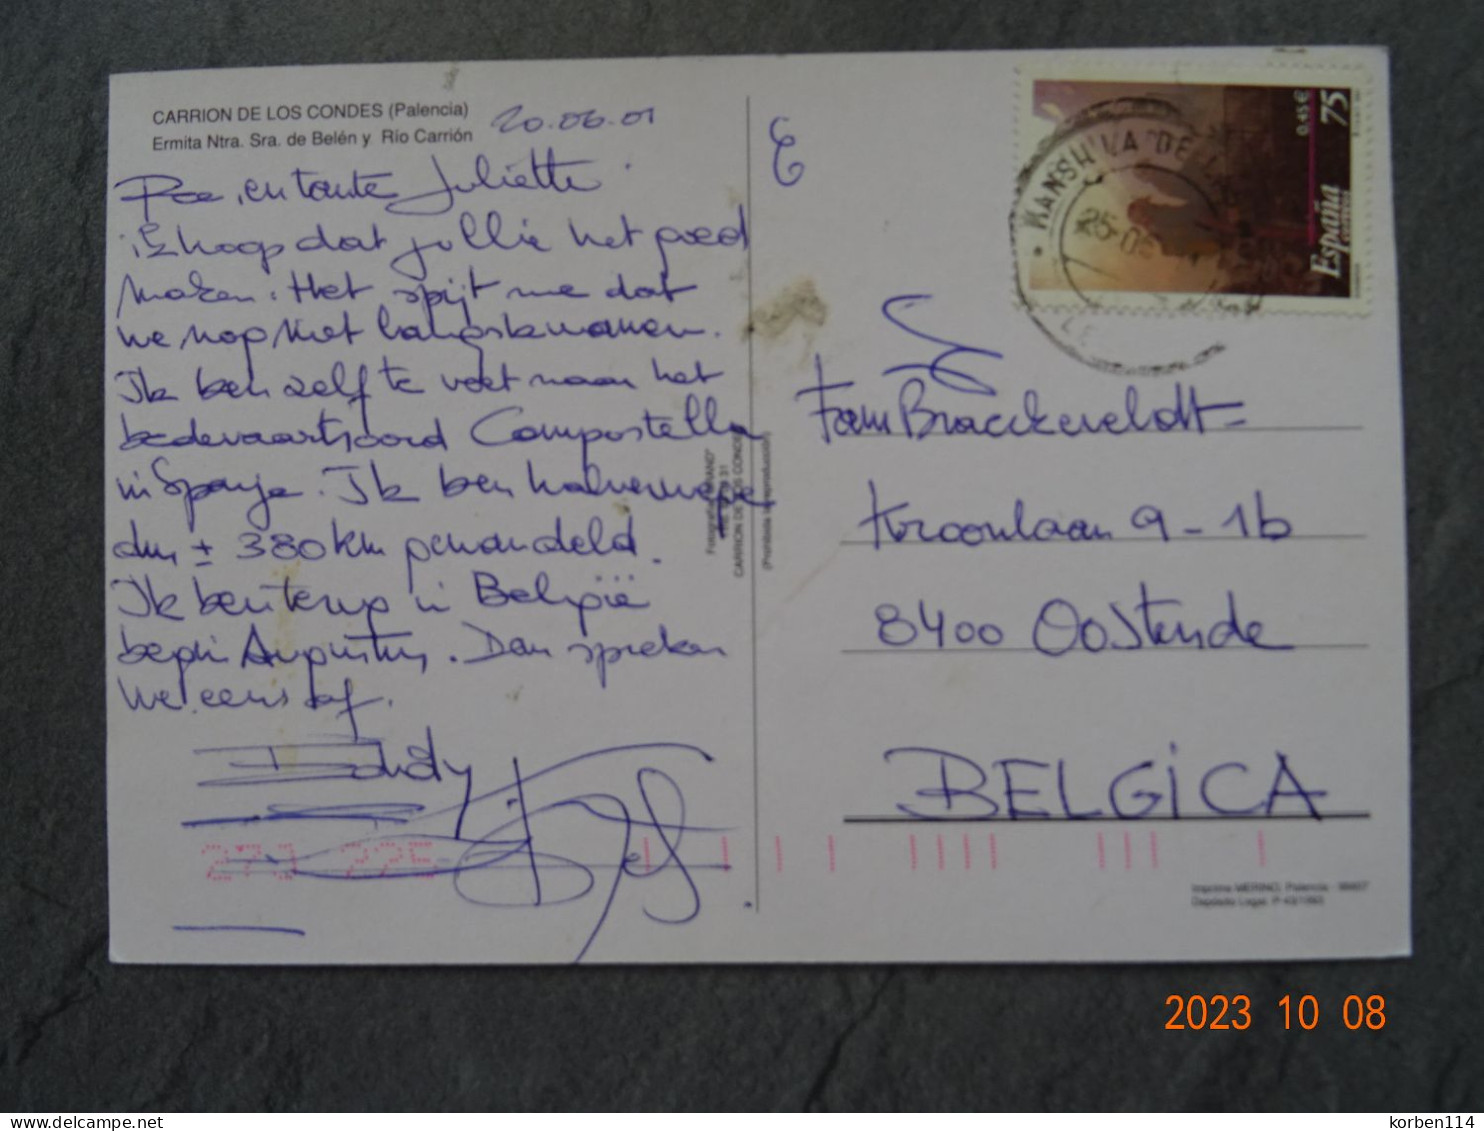 CARRION DE LOS CONDES (Palencia)
Ermita Ntra. Sra. de Belén y Río Carrión
20.06.01
en tante Juliette
ik hoop dat jullie het goed
maken. Het spijt me dat
we nog niet langskwamen.
Ik ben zelf te voet naar het
bedevaartsoord Compostella
in Spanje. Ik ben halverwege
dus ± 380 km gewandeld.
Ik ben terug in België
begin Augustus. Dan spreken
we eens af.
España
75
0,45 €
25-06
Fam Braeckeveldt
Kroonlaan 9-1b
8400 Oostende
BELGICA
CARRION DE LOS CONDES
(Prohibida la reproducción)
271 225
Imprime MERINO. Palencia
Depósito Legal: P
2023 10 08
delcampe.net
korben114